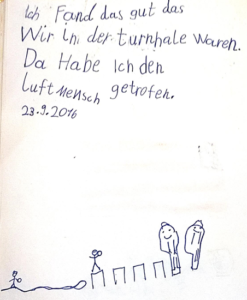 Ich Fand das gut das
Wir in der turnhale waren.
Da Habe Ich den
Luftmensch getrofen.
23.9.2016